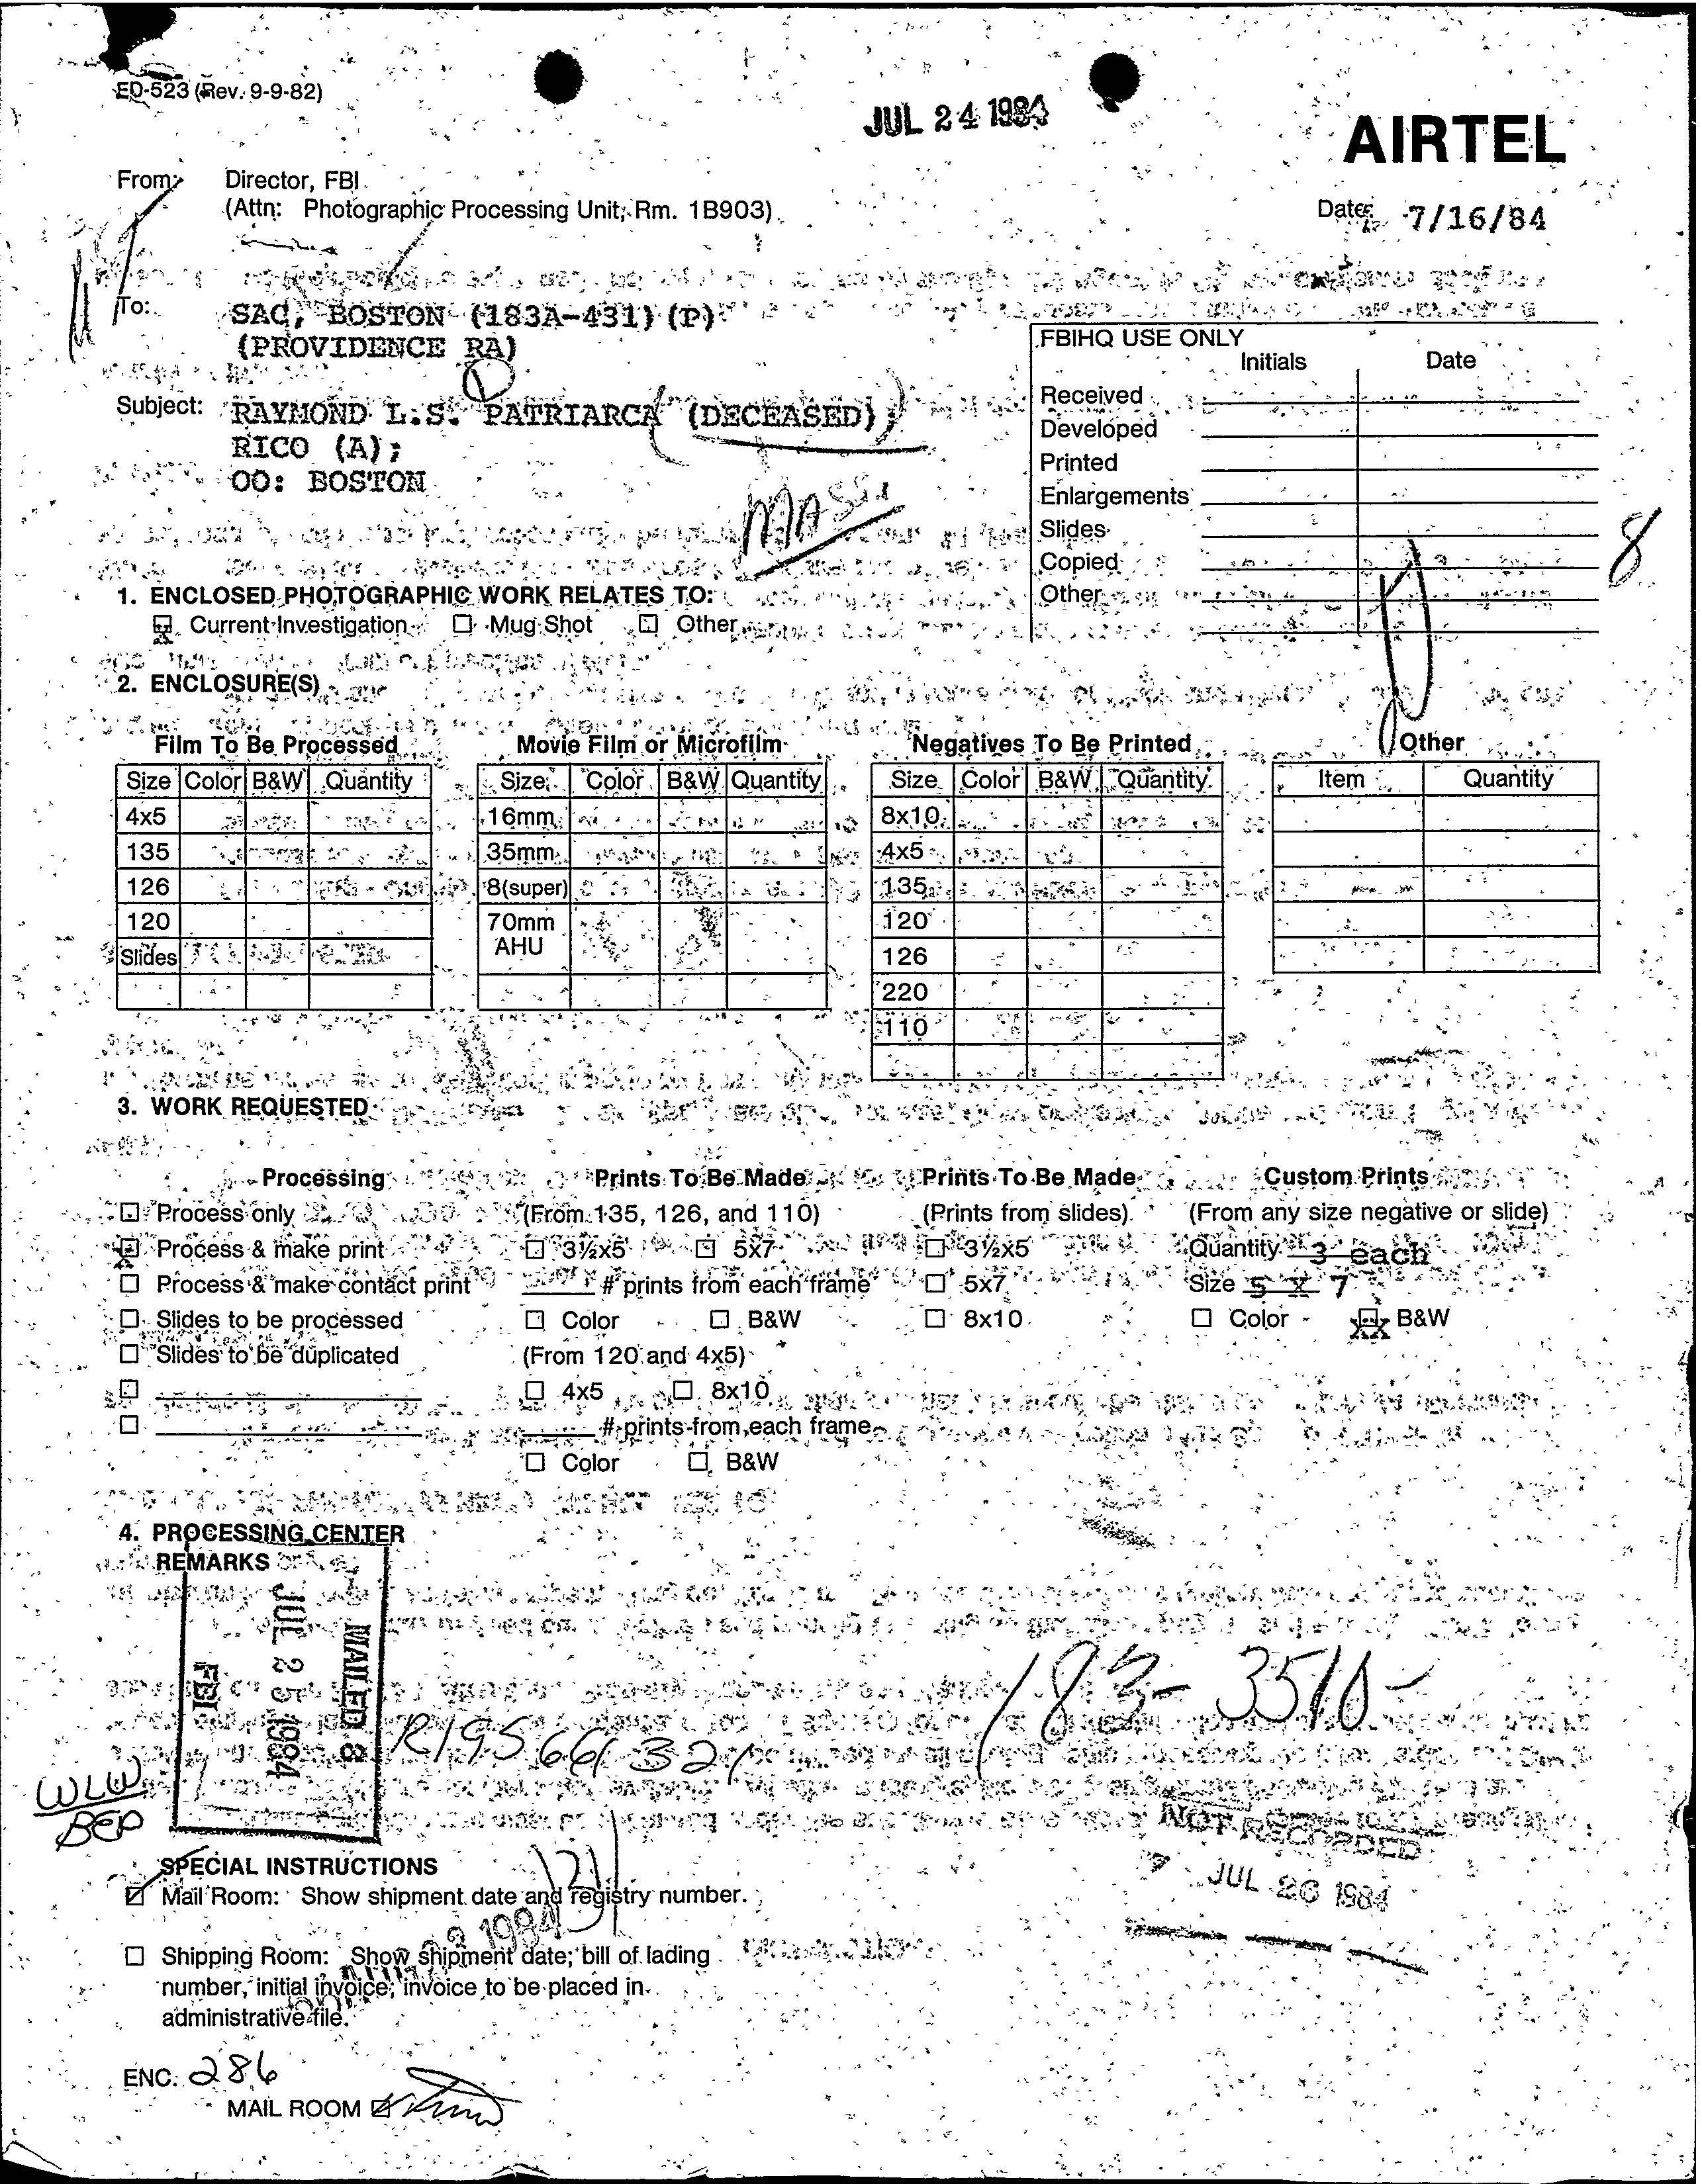 (Rev. 9-9-82)
JUL 24 1984
AIRTEL
From: Director, FBI
(Attn: Photographic Processing Unit, Rm. 1B903)
Date: 7/16/84
To: SAC, BOSTON (183A-431) (P)
(PROVIDENCE RA)
Subject: RAYMOND L.S. PATRIARCA (DECEASED);
RICO (A);
OO: BOSTON
FBIHQ USE ONLY
Initials Date
Received
Developed
Printed
Enlargements
Slides
Copied
Other
8
1. ENCLOSED PHOTOGRAPHIC WORK RELATES TO:
Current Investigation Mug Shot Other
2. ENCLOSURE(S)
Film To Be Processed
Size Color B&W Quantity
4x5
135
126
120
Slides
Movie Film or Microfilm
Size Color B&W Quantity
16mm
35mm
8(super)
70mm
AHU
Negatives To Be Printed
Size Color B&W Quantity
8x10
4x5
135
120
126
220
110
Other
Item Quantity
3. WORK REQUESTED
Processing
Process only
Process & make print
Process & make contact print
Slides to be processed
Slides to be duplicated
Prints To Be Made
(From 135, 126, and 110)
3½x5 5x7
# prints from each frame
Color B&W
(From 120 and 4x5)
4x5 8x10
# prints from each frame
Color B&W
Prints To Be Made
(Prints from slides)
3½x5
5x7
8x10
Custom Prints
(From any size negative or slide)
Quantity 3 each
Size 5 X 7
Color B&W
4. PROCESSING CENTER
REMARKS
MAILED 8
JUL 25 1984
FBI
R195 661 321
183-3510-
WLW
BEP
NOT RECORDED
JUL 26 1984
SPECIAL INSTRUCTIONS
Mail Room: Show shipment date and registry number.
Shipping Room: Show shipment date; bill of lading
number; initial invoice; invoice to be placed in
administrative file.
ENC. 286
MAIL ROOM